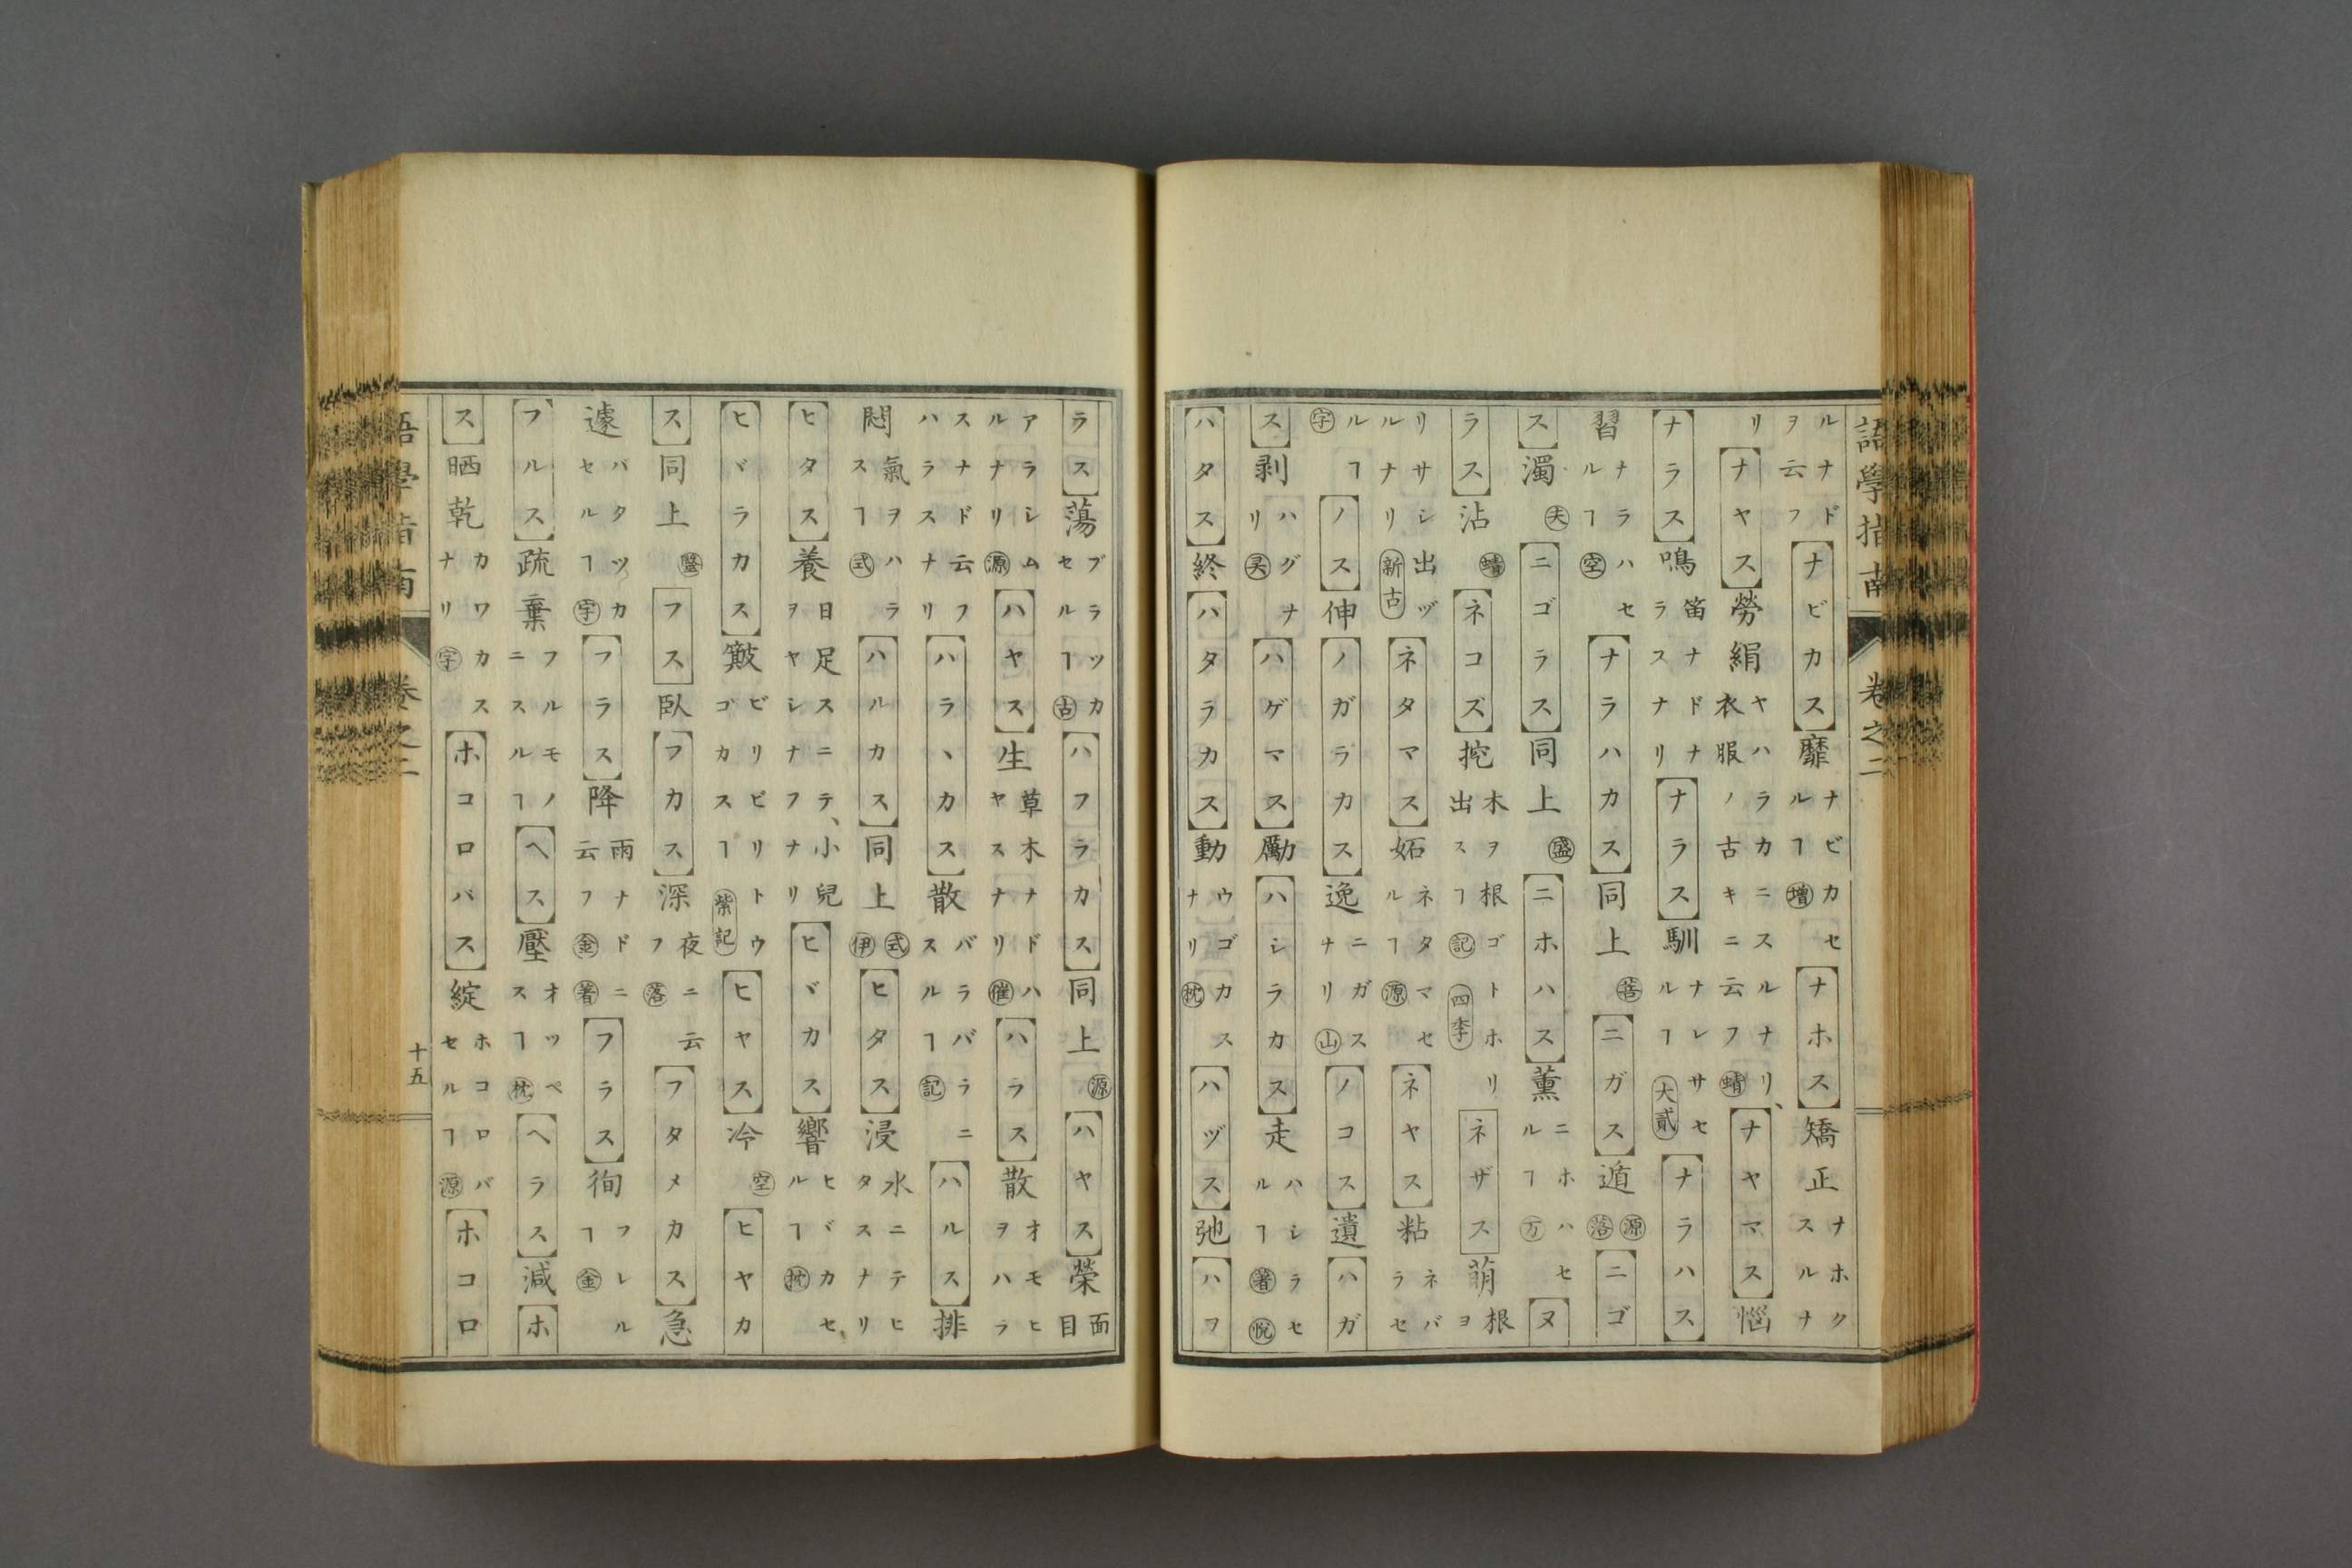 語學指南 卷之二
ルナドヲ云フ【ナビカス】靡ナビカセルヿ増【ナホス】矯正ナホクスルナ
リ【ナヤス】勞絹ヤハラカニスルナリ、衣服ノ古キニ云フ蜻【ナヤマス】惱
【ナラス】鳴笛ナドナラスナリ【ナラス】馴ナレサセルヿ大貳【ナラハス】
習ナラハセルヿ空【ナラハカス】同上菩【ニガス】遁源落【ニゴ
ス】濁天【ニゴラス】同上盛【ニホハス】薫ニホハセルヿ万【ヌ
ラス】沾蜻【ネコズ】挖木ヲ根ゴトホリ出スヿ記四季【ネザス】萌根ヨ
リサシ出ヅルナリ新古【ネタマス】妬ネタマセルヿ源【ネヤス】粘ネバラセ
ルヿ字【ノス】伸【ノガラカス】逸ニガスナリ山【ノコス】遺【ハガ
ス】剥ハグナリ【ハゲマス】勵【ハシラカス】走ハシラセルヿ著悦
【ハタス】終【ハタラカス】動ウゴカスナリ枕【ハヅス】弛【ハフ
ラス】蕩ブラツカセルヿ古【ハフラカス】同上源【ハヤス】榮面目
アラシムルナリ源【ハヤス】生草木ナドハヤスナリ催【ハラス】散オモヒヲハラ
スナド云フハラスナリ【ハラヽカス】散バラバラニスルヿ記【ハルス】排
悶氣ヲハラスヿ式【ハルカス】同上式伊【ヒタス】浸水ニテヒタスナリ
【ヒタス】養日足スニテ、小兒ヲヤシナフナリ【ヒヾカス】響ヒヾカセルヿ枕
【ヒヾラカス】皺ビリビリトウゴカスヿ紫記【ヒヤス】冷空【ヒヤカ
ス】同上盛【フス】臥【フカス】深夜ニ云フ落【フタメカス】急
遽バタツカセルヿ字【フラス】降雨ナドニ云フ金著【フラス】徇フレルヿ金
【フルス】疏棄フルモノニスルヿ【ヘス】壓オツペスヿ枕【ヘラス】減【ホ
ス】晒乾カワカスナリ字【ホコロバス】綻ホコロバセルヿ源【ホコロ
語學指南 卷之二 十五